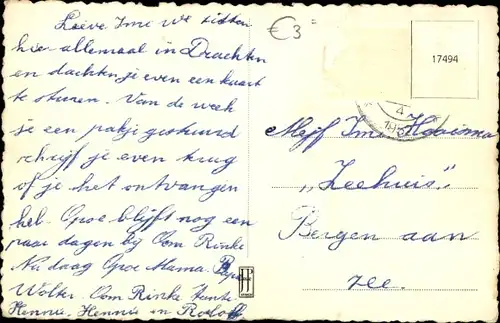 Lieve Imi We zitten
hier allemaal in Drachten
en dachten je even een kaart
te sturen. Van de week
je een pakje gestuurd
schrijf je even trug
of je het ontvangen
heb. Opoe blijft nog een
paar dagen bij Oom Rinke
Nu daag Opoe Mama
Wolter. Oom Rinke Tante
Hennie, Hennie in
€3
17494
4
Mejf Imi Hooisma
"Zeehuis"
Bergen aan
zee.
JP